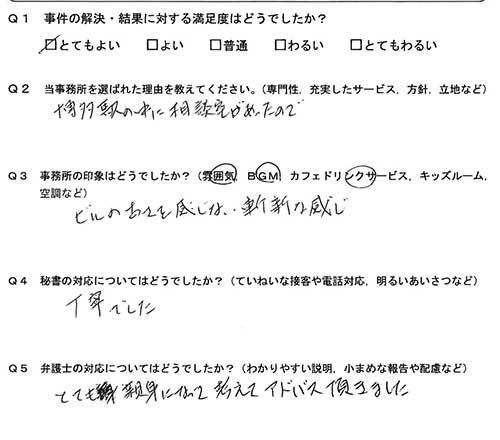 Q1 事件の解決・結果に対する満足度はどうでしたか?
☑とてもよい □よい □普通 □わるい □とてもわるい
Q2 当事務所を選ばれた理由を教えてください。(専門性,充実したサービス,方針,立地など)
博多駅の中に相談室があったので
Q3 事務所の印象はどうでしたか?(雰囲気,BGM,カフェドリンクサービス,キッズルーム,
空調など)
ビルの古さを感じない、斬新な感じ
Q4 秘書の対応についてはどうでしたか?(ていねいな接客や電話対応,明るいあいさつなど)
丁寧でした
Q5 弁護士の対応についてはどうでしたか?(わかりやすい説明,小まめな報告や配慮など)
とても親身になって考えてアドバス頂きました